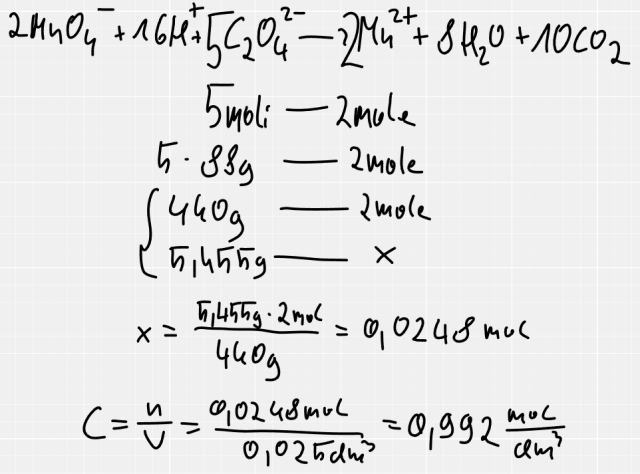 2MnO₄⁻ + 16H⁺ + 5C₂O₄²⁻ — 2Mn²⁺ + 8H₂O + 10CO₂
5moli — 2mole
5 · 88g — 2mole
440g — 2mole
5,455g — x
x = 5,455g · 2mol / 440g = 0,0248 mol
C = n/V = 0,0248mol / 0,025dm³ = 0,992 mol/dm³